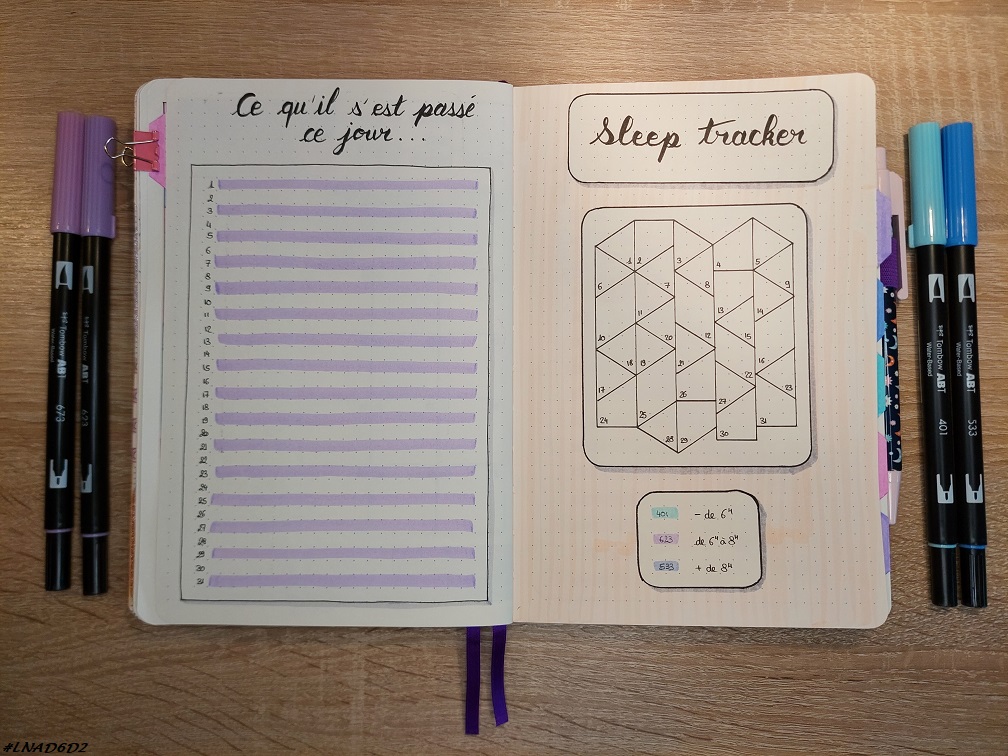 Ce qu'il s'est passé
ce jour...
1
2
3
4
5
6
7
8
9
10
11
12
13
14
15
16
17
18
19
20
21
22
23
24
25
26
27
28
29
30
31
Sleep tracker
1 2 3 4 5
6 7 8 9
11 13 14
10 20 12 15
18 19 21 16
17 22 23
26 27
24 25 31
28 29 30
401 - de 6h
623 de 6h à 8h
533 + de 8h
Tombow ABT
Water-Based
673
Tombow ABT
623
Tombow ABT
Water-Based
401
Tombow ABT
Water-Based
533
#LNAD6D2